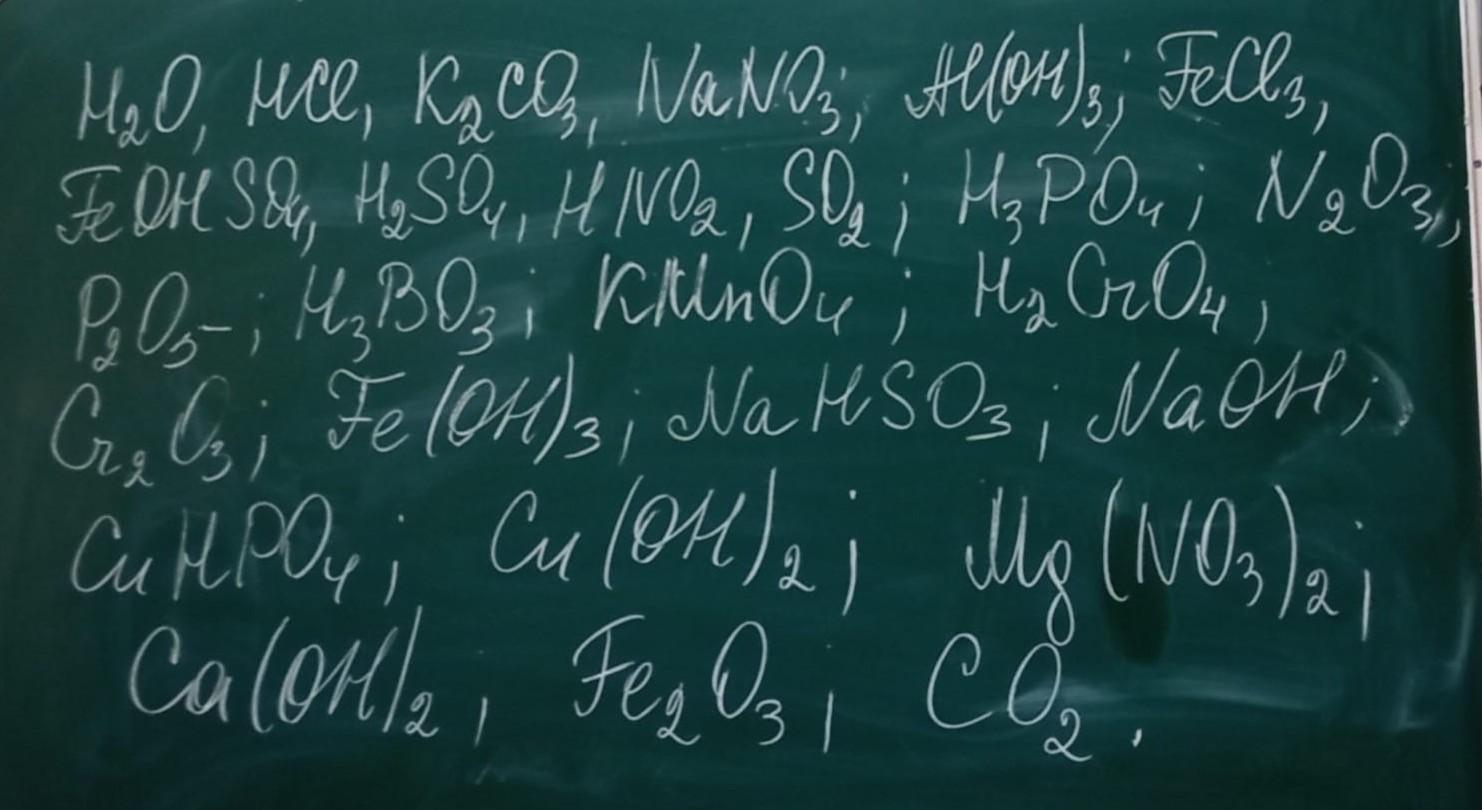 H₂O, HCl, K₂CO₃, NaNO₃; Al(OH)₃; FeCl₃,
FeOHSO₄, H₂SO₄, HNO₂, SO₂; H₃PO₄; N₂O₃;
P₂O₅; H₃BO₃; KMnO₄; H₂CrO₄,
Cr₂O₃; Fe(OH)₃; NaHSO₃; NaOH;
CuHPO₄; Cu(OH)₂; Mg(NO₃)₂;
Ca(OH)₂, Fe₂O₃; CO₂.